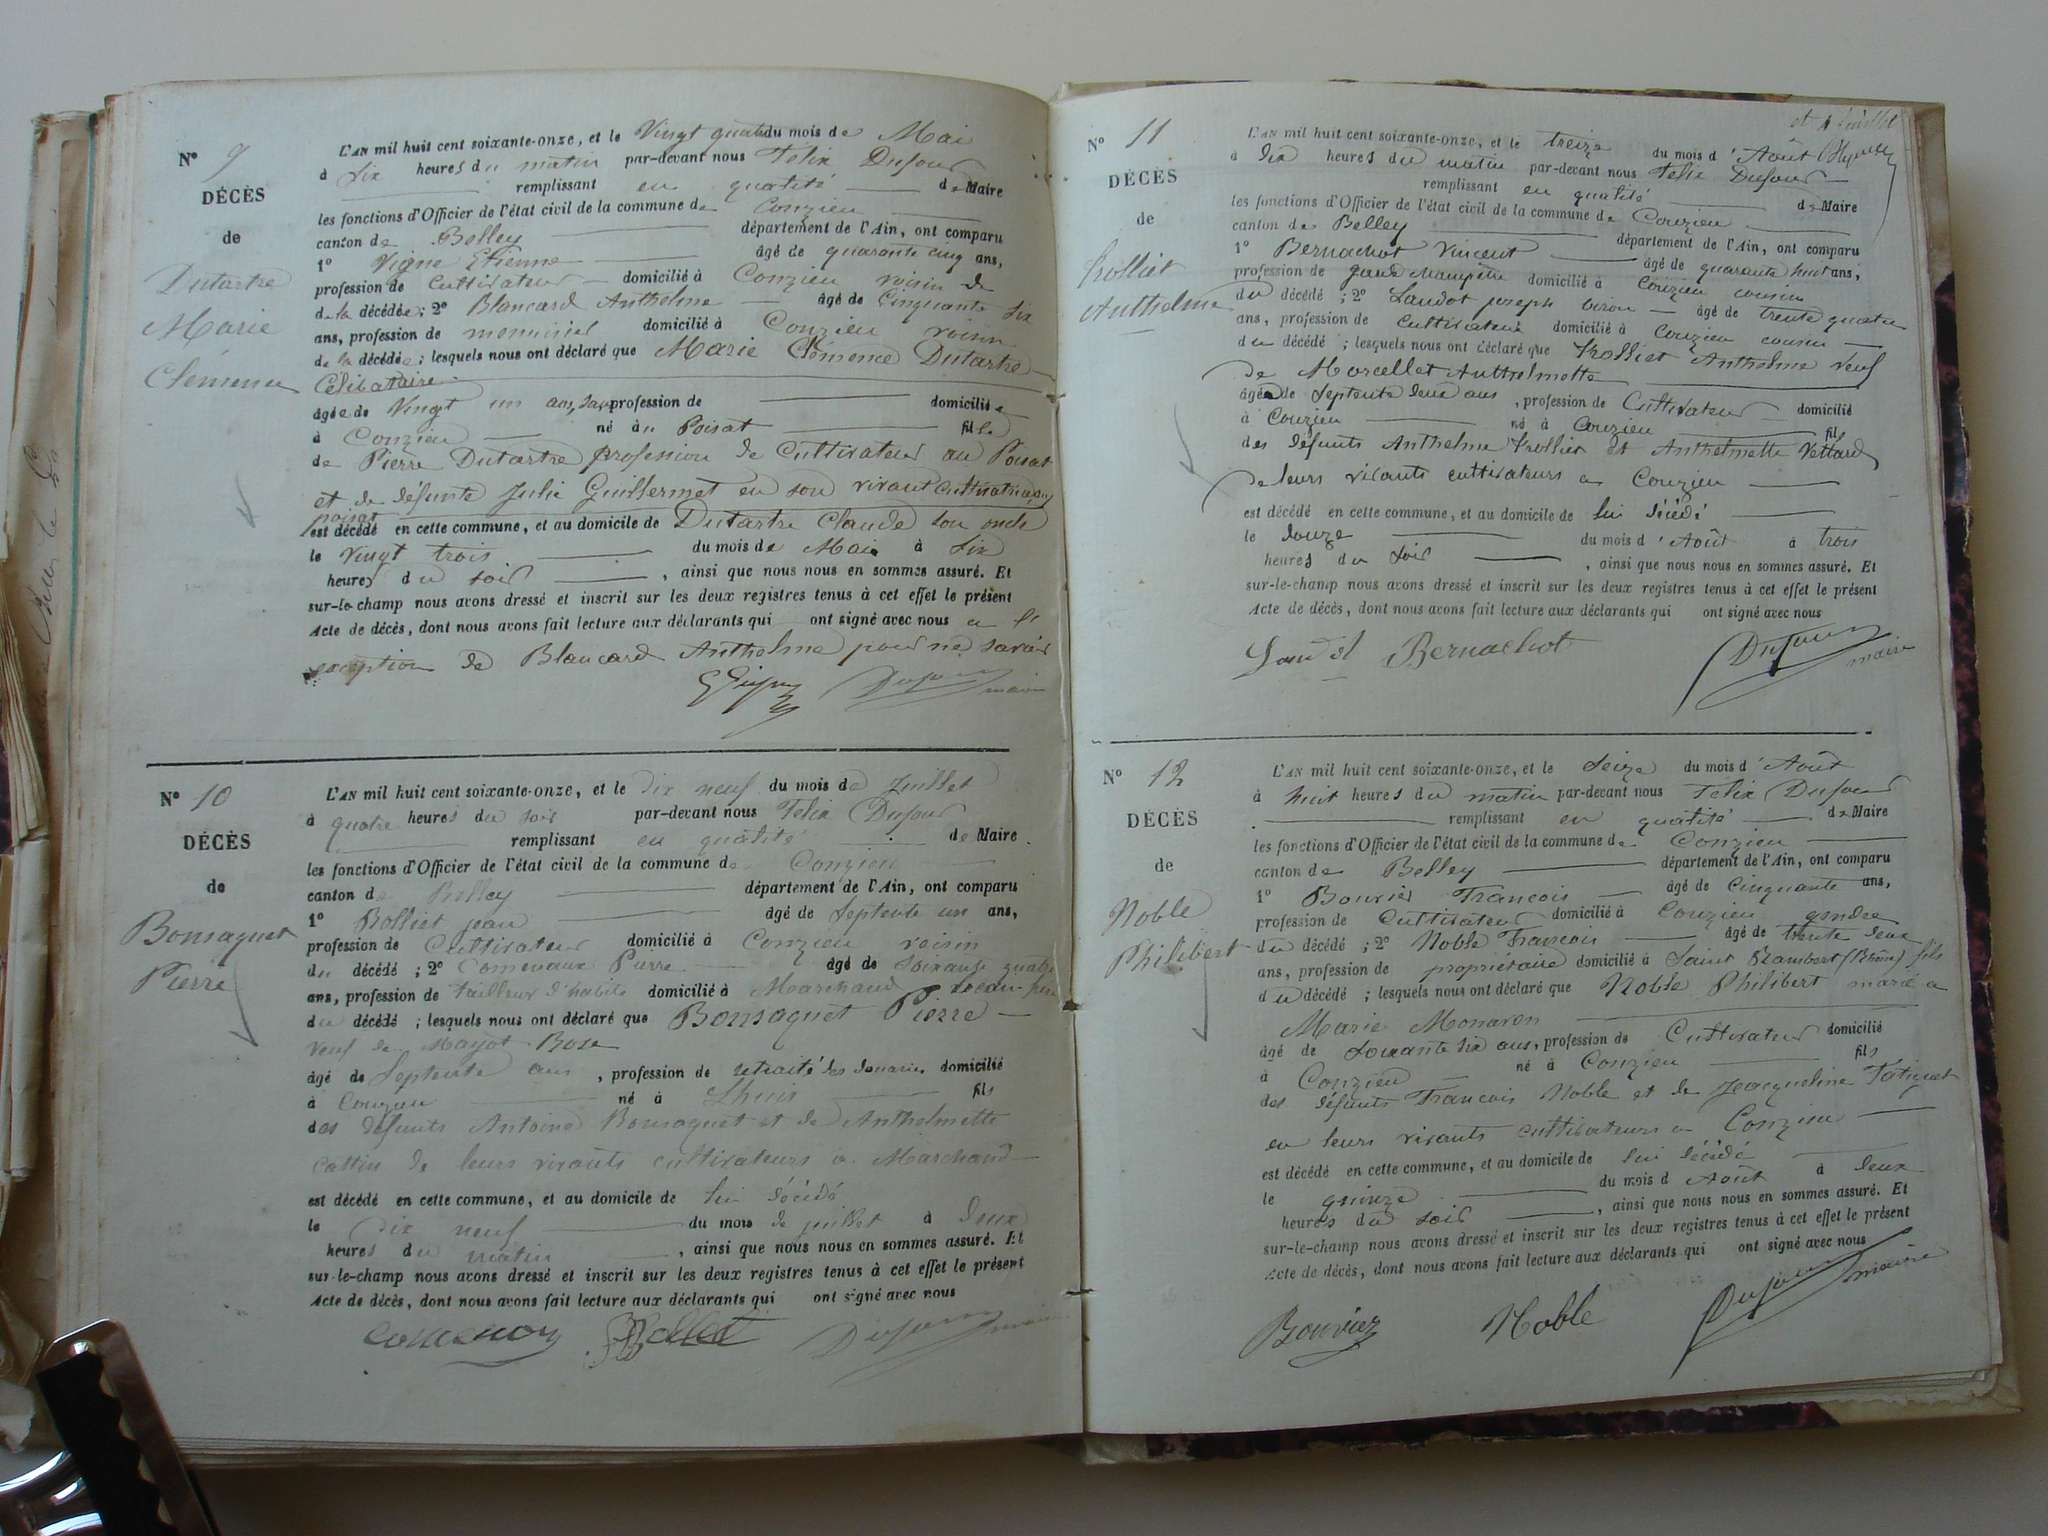 N° 9
DÉCÈS
de
Dutartre
Marie
Clémence
L'AN mil huit cent soixante-onze, et le Vingt quatre du mois de Mai
à Six heures du matin par-devant nous Felix Dufour
remplissant en qualité de Maire
les fonctions d'Officier de l'état civil de la commune de Conzieu
canton de Belley département de l'Ain, ont comparu
1° Vigne Etienne âgé de quarante cinq ans,
profession de Cultivateur domicilié à Conzieu voisin de
de la décédée; 2° Blancard Anthelme âgé de Cinquante six
ans, profession de menuisier domicilié à Conzieu voisin
de la décédée; lesquels nous ont déclaré que Marie Clémence Dutartre
Célibataire
âgée de Vingt un ans, sans profession de domiciliée
à Conzieu né au Poisat fille
de Pierre Dutartre profession de Cultivateur au Poisat
et de défunte Julie Guillermet en son vivant Cultivatrice au
poisat
est décédé en cette commune, et au domicile de Dutartre Claude son oncle
le vingt trois du mois de Mai à Six
heures du soir, ainsi que nous nous en sommes assuré. Et
sur-le-champ nous avons dressé et inscrit sur les deux registres tenus à cet effet le présent
Acte de décès, dont nous avons fait lecture aux déclarants qui ont signé avec nous a l'
exception de Blancard Anthelme pour ne savoir
Dufour maire
N° 10
DÉCÈS
de
Bonsaquet
Pierre
L'AN mil huit cent soixante-onze, et le dix neuf du mois de Juillet
à quatre heures du soir par-devant nous Felix Dufour
remplissant en qualité de Maire
les fonctions d'Officier de l'état civil de la commune de Conzieu
canton de Belley département de l'Ain, ont comparu
1° Rolliet jean âgé de Septente un ans,
profession de Cultivateur domicilié à Conzieu voisin
du décédé; 2° Pierre âgé de Soixante quatre
ans, profession de tailleur d'habits domicilié à Marchand beau-père
du décédé; lesquels nous ont déclaré que Bonsaquet Pierre
veuf de Mayot Rose
âgé de Septente ans, profession de retraité des douanes domicilié
à Conzieu né à Lhuis fils
des défunts Antoine Bonsaquet et de Anthelmette
Cattin de leurs vivants cultivateurs a Marchand
est décédé en cette commune, et au domicile de lui décédé
le dix neuf du mois de juillet à deux
heures du matin, ainsi que nous nous en sommes assuré. Et
sur-le-champ nous avons dressé et inscrit sur les deux registres tenus à cet effet le présent
Acte de décès, dont nous avons fait lecture aux déclarants qui ont signé avec nous
Dufour maire
N° 11
DÉCÈS
de
trolliet
Anthelme
L'AN mil huit cent soixante-onze, et le treize du mois d'Août
à Six heures du matin par-devant nous Felix Dufour
remplissant en qualité de Maire
les fonctions d'Officier de l'état civil de la commune de Conzieu
canton de Belley département de l'Ain, ont comparu
1° Bernachot Vincent âgé de quarante huit ans,
profession de garde champêtre domicilié à Conzieu cousin
du décédé; 2° Landot joseph âgé de trente quatre
ans, profession de Cultivateur domicilié à Conzieu cousin
du décédé; lesquels nous ont déclaré que trolliet Anthelme veuf
de Morcellet Anthelmette
âgé de Septente deux ans, profession de Cultivateur domicilié
à Conzieu né à Conzieu fils
des défunts Anthelme trolliet et Anthelmette Vettard
de leurs vivants cultivateurs a Conzieu
est décédé en cette commune, et au domicile de lui décédé
le douze du mois d'Août à trois
heures du soir, ainsi que nous nous en sommes assuré. Et
sur-le-champ nous avons dressé et inscrit sur les deux registres tenus à cet effet le présent
Acte de décès, dont nous avons fait lecture aux déclarants qui ont signé avec nous
Landot Bernachot Dufour maire
N° 12
DÉCÈS
de
Noble
Philibert
L'AN mil huit cent soixante-onze, et le Seize du mois d'Août
à huit heures du matin par-devant nous Felix Dufour
remplissant en qualité de Maire
les fonctions d'Officier de l'état civil de la commune de Conzieu
canton de Belley département de l'Ain, ont comparu
1° Bouvier Francois âgé de Cinquante ans,
profession de Cultivateur domicilié à Conzieu gendre
du décédé; 2° Noble Francois âgé de trente deux
ans, profession de propriétaire domicilié à Saint Rambert (Rhône) fils
du décédé; lesquels nous ont déclaré que Noble Philibert marié a
Marie Monavon
âgé de Soixante six ans, profession de Cultivateur domicilié
à Conzieu né à Conzieu fils
des défunts Francois Noble et de Jacqueline
en leurs vivants cultivateurs a Conzieu
est décédé en cette commune, et au domicile de lui décédé
le quinze du mois d'Août à deux
heures du soir, ainsi que nous nous en sommes assuré. Et
sur-le-champ nous avons dressé et inscrit sur les deux registres tenus à cet effet le présent
Acte de décès, dont nous avons fait lecture aux déclarants qui ont signé avec nous
Bouvier Noble Dufour maire